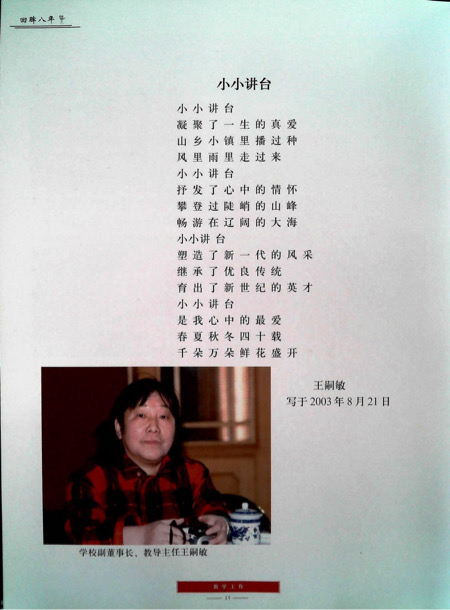 回眸八年
小小讲台
小小讲台
凝聚了一生的真爱
山乡小镇里播过种
风里雨里走过来
小小讲台
抒发了心中的情怀
攀登过陡峭的山峰
畅游在辽阔的大海
小小讲台
塑造了新一代的风采
继承了优良传统
育出了新世纪的英才
小小讲台
是我心中的最爱
春夏秋冬四十载
千朵万朵鲜花盛开
王嗣敏
写于2003年8月21日
学校副董事长、教导主任王嗣敏
教学工作